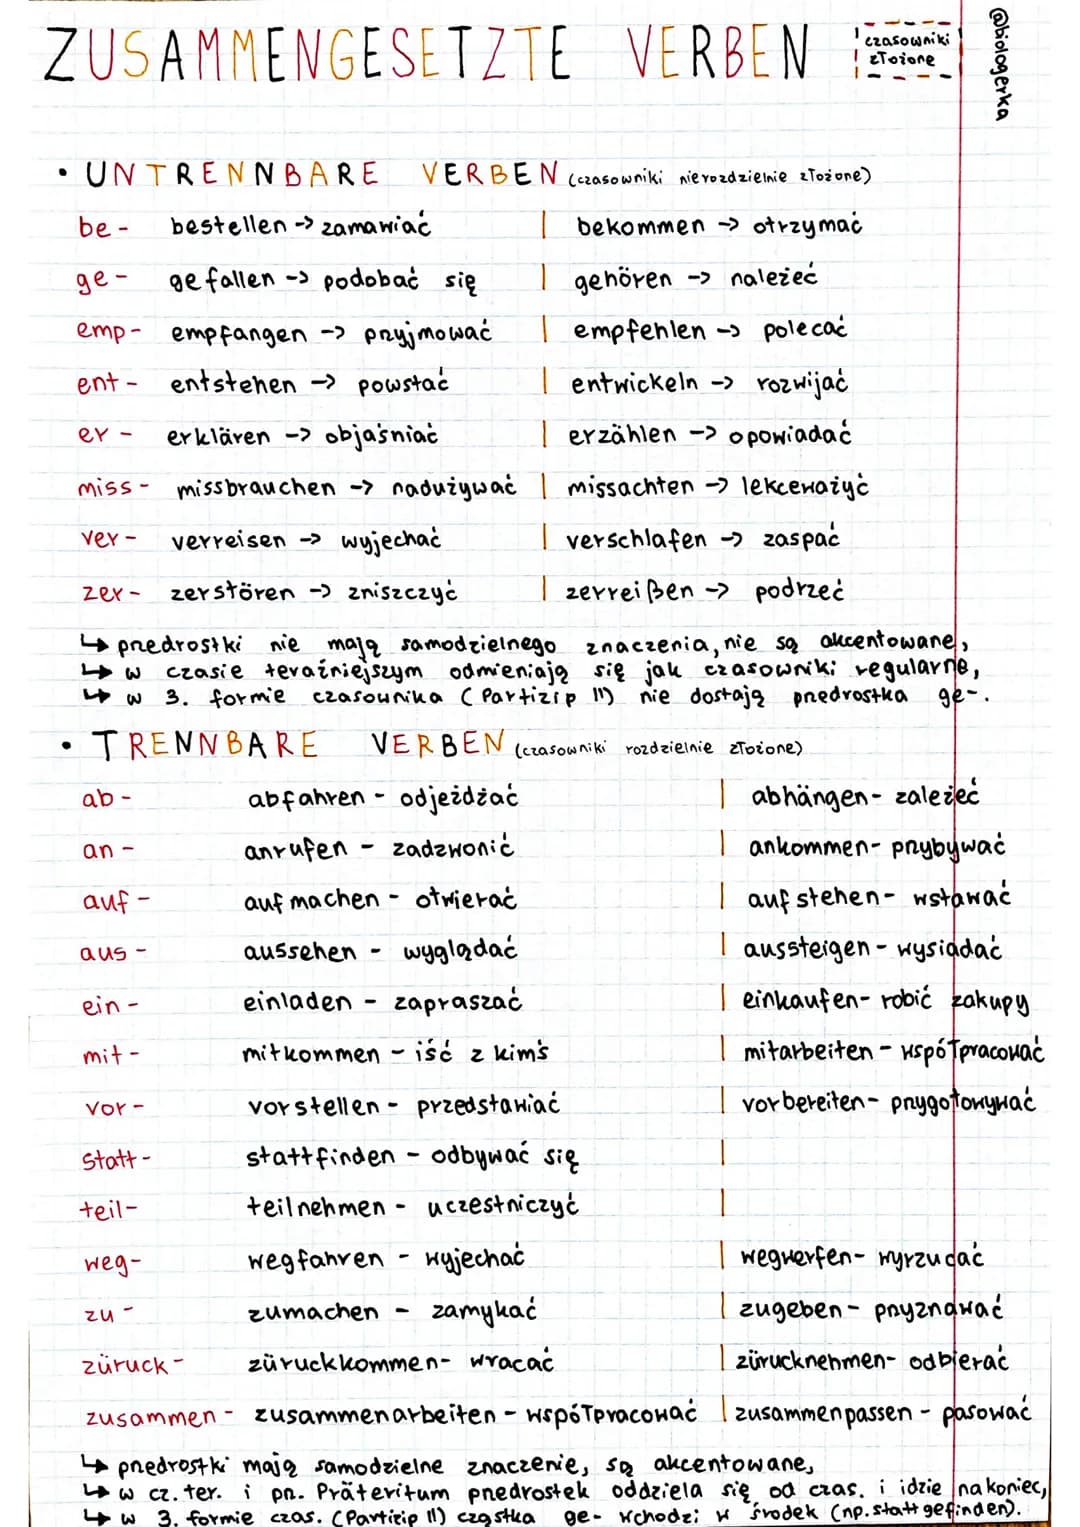 ZUSAMMENGESETZTE VERBEN
czasowniki
złożone
@biologerka
• UNTRENNBARE VERBEN (czasowniki nierozdzielnie złożone)
be- bestellen -> zamawiać | bekommen -> otrzymać
ge- gefallen -> podobać się | gehören -> należeć
emp- empfangen -> przyjmować | empfehlen -> polecać
ent- entstehen -> powstać | entwickeln -> rozwijać
er- erklären -> objaśniać | erzählen -> opowiadać
miss- missbrauchen -> nadużywać | missachten -> lekceważyć
ver- verreisen -> wyjechać | verschlafen -> zaspać
zer- zerstören -> zniszczyć | zerreißen -> podrzeć
↳ przedrostki nie mają samodzielnego znaczenia, nie są akcentowane,
↳ w czasie teraźniejszym odmieniają się jak czasowniki regularne,
↳ w 3. formie czasownika (Partizip II) nie dostają przedrostka ge-.
• TRENNBARE VERBEN (czasowniki rozdzielnie złożone)
ab- abfahren - odjeżdżać | abhängen - zależeć
an- anrufen - zadzwonić | ankommen - przybywać
auf- aufmachen - otwierać | aufstehen - wstawać
aus- aussehen - wyglądać | aussteigen - wysiadać
ein- einladen - zapraszać | einkaufen - robić zakupy
mit- mitkommen - iść z kimś | mitarbeiten - współpracować
vor- vorstellen - przedstawiać | vorbereiten - przygotowywać
statt- stattfinden - odbywać się |
teil- teilnehmen - uczestniczyć |
weg- wegfahren - wyjechać | wegwerfen - wyrzucać
zu- zumachen - zamykać | zugeben - przyznawać
züruck- züruckkommen - wracać | zürucknehmen - odbierać
zusammen- zusammenarbeiten - współpracować | zusammenpassen - pasować
↳ przedrostki mają samodzielne znaczenie, są akcentowane,
↳ w cz. ter. i prz. Präteritum przedrostek oddziela się od czas. i idzie na koniec,
↳ w 3. formie czas. (Partizip II) cząstka ge- wchodzi w środek (np. stattgefinden).